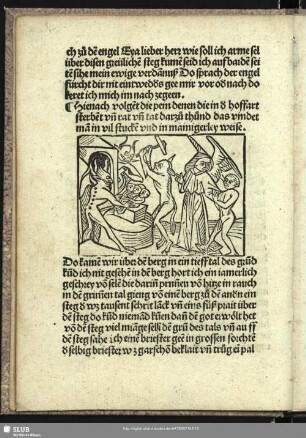 ch zů dē engel Eya lieber herr wie soll ich arme sel
über disen greülichē steg kumē seid ich auf baidē sei
tē sihe mein ewige verdānuß Do sprach der engel
fürcht dir nit eintwedēs gee mir vor oder nach do
keret ich mich im nach zegeen.
Hienach volgēt die pein denen die in d hoffart
sterbēt vñ rat vñ tat darzů thůnd das vindet
mā in vil stuckē vnd in manigerley weise.
Do kamē wir über dē berg in ein tieff tal des grūd
kūd ich nit gesehē in dē berg hort ich ein iamerlich
geschrey vō selē die darū prunē vō hitze in rauch
in dē grunē tal gieng vō einē berg zů dē andn ein
steg d wz tausent schrit lāck vn eins fůß prait über
dē steg do kūd niemād kūen dañ dē got wölt het
vō dē steg viel mānige sell dē grū des tals vn auff
dē steg sahe ich einē briester gee in grossen forchtē
d selbig briester wz garschō beklait vn trůg ei pal
SLUB